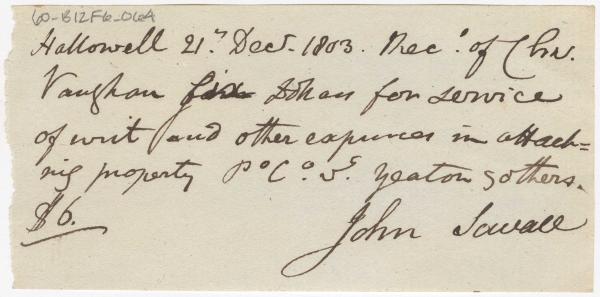 60-B12F6-064
Hallowell 21st Decr. 1803. Recd. of Chs.
Vaughan six Dollars for service
of writ and other expences in attach=
ing property Po Co vs. Yeaton & others.
$6. John Sewall